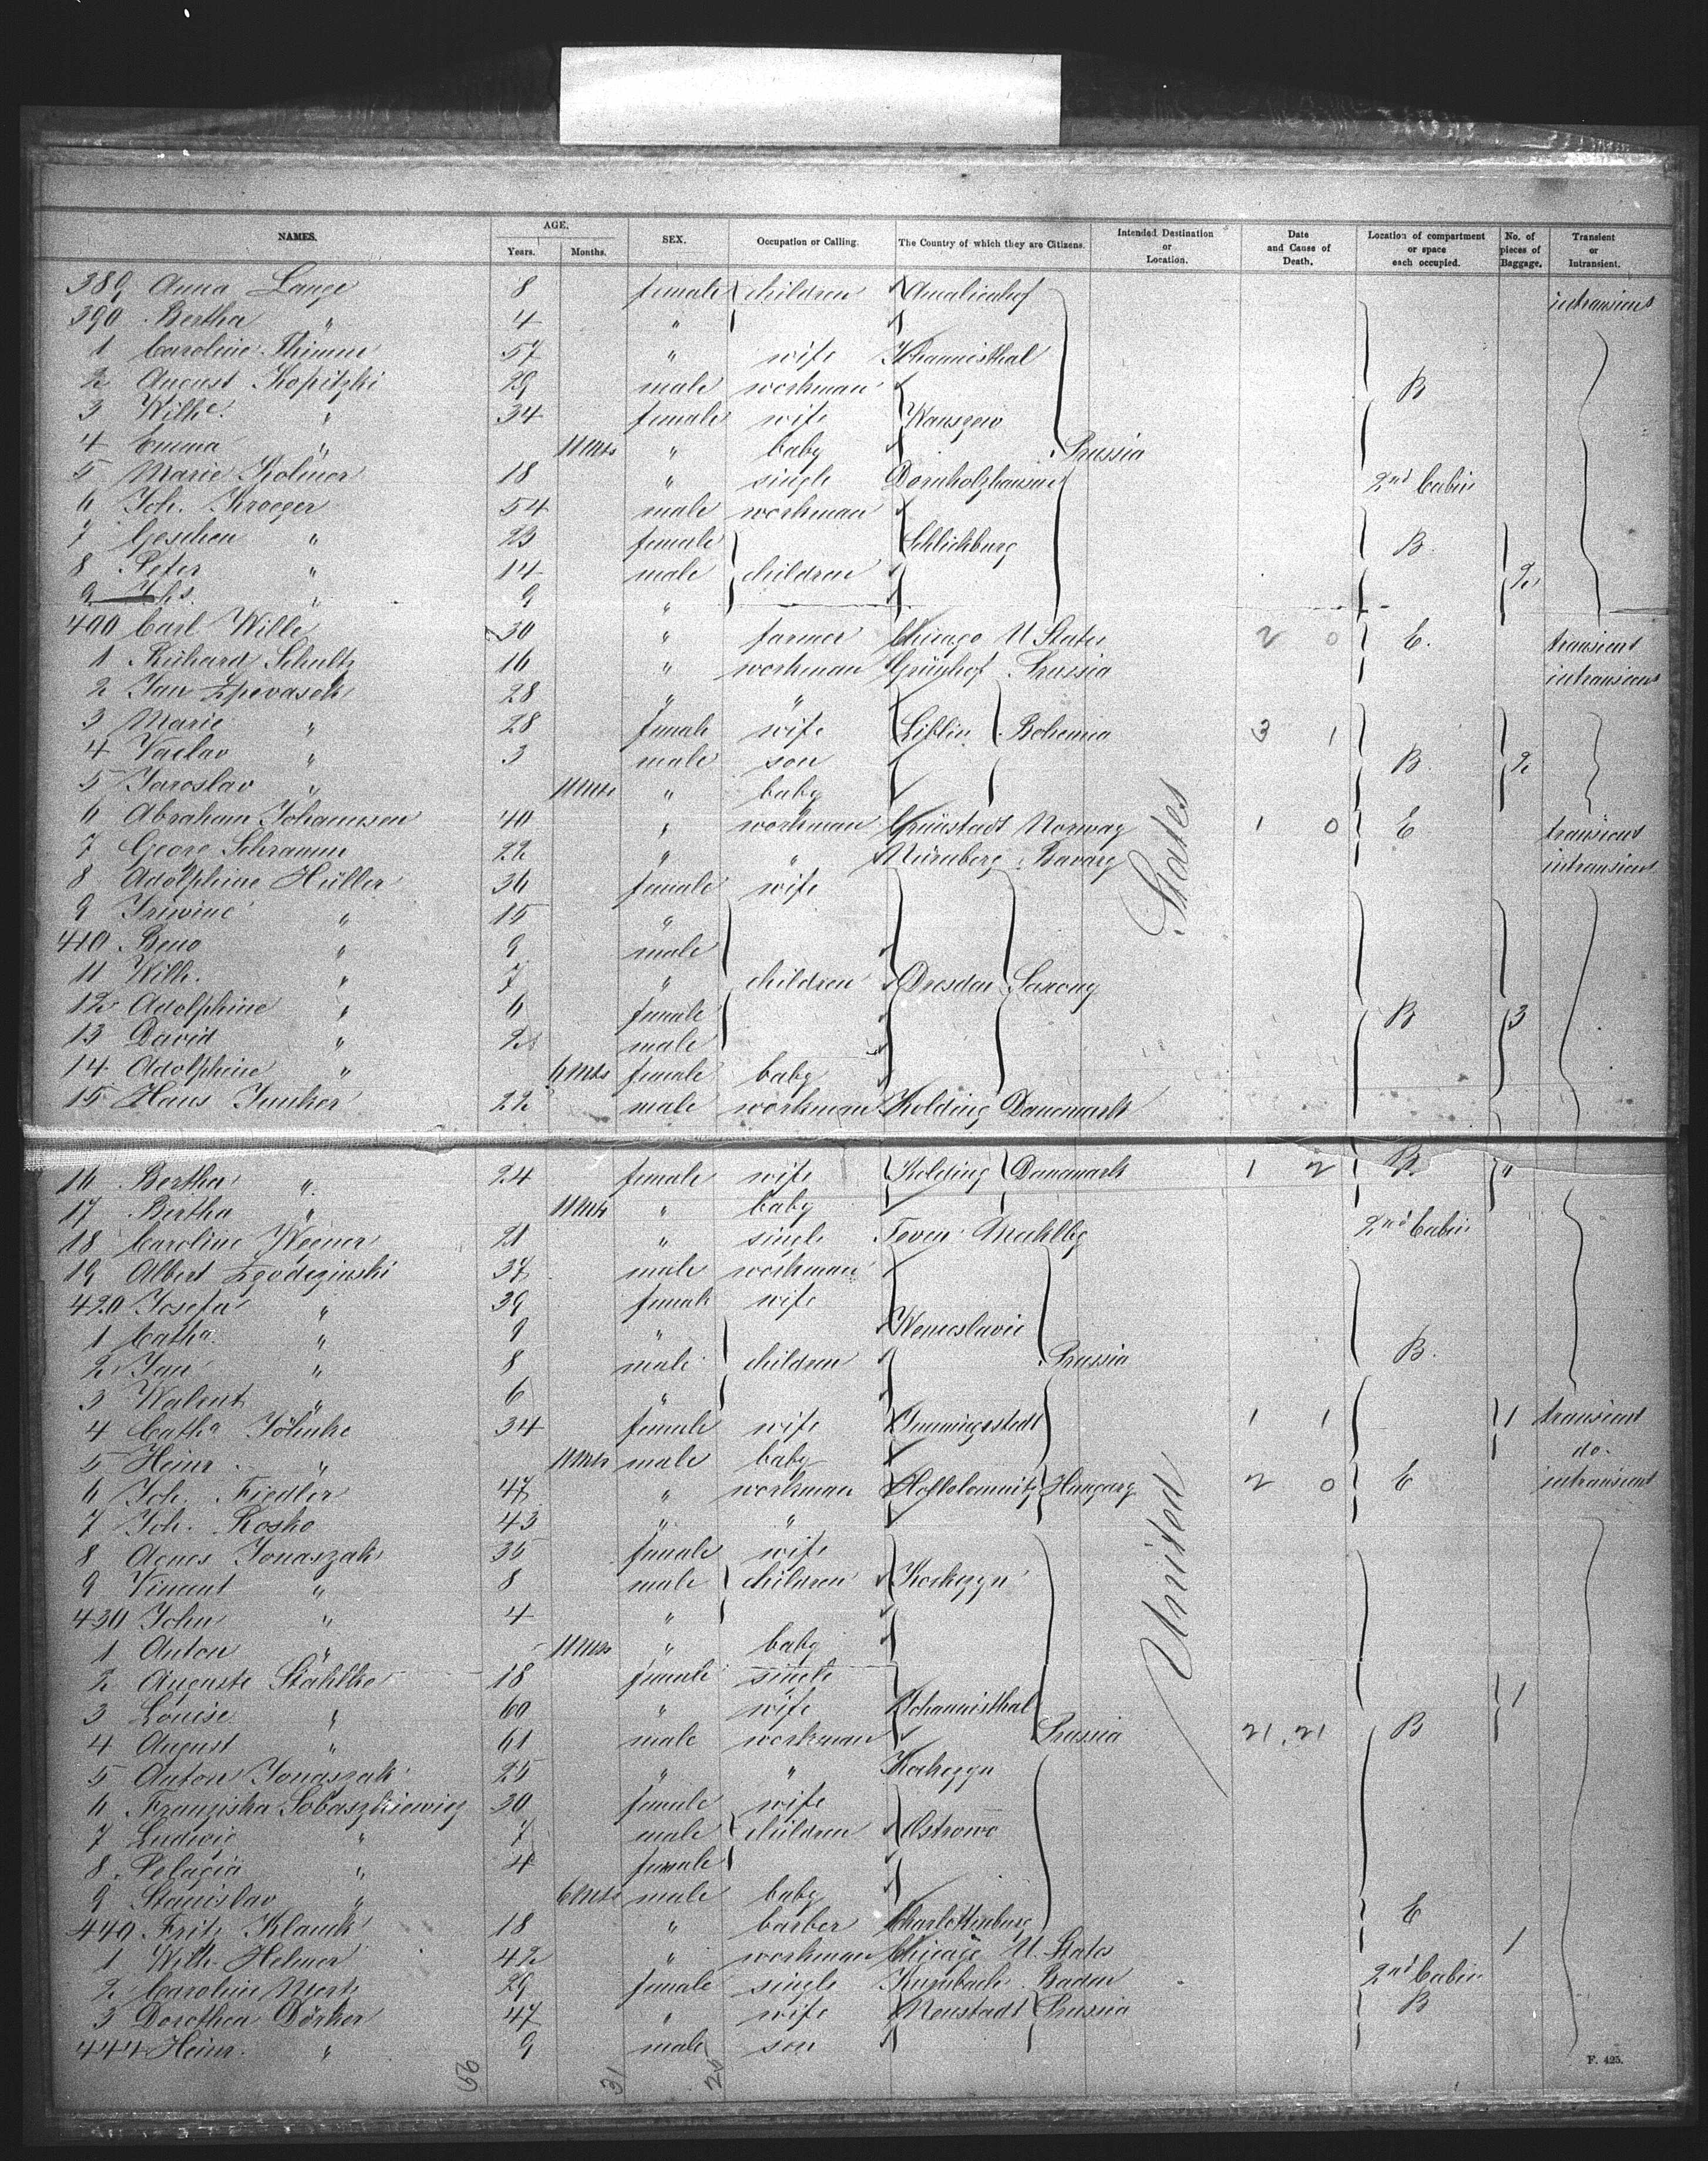 NAMES. AGE. Years. Months. SEX. Occupation or Calling. The Country of which they are Citizens. Intended Destination or Location. Date and Cause of Death. Location of compartment or space each occupied. No. of pieces of Baggage. Transient or Intransient.
389 Anna Lange 8 female children Amalienhof intransient
390 Bertha " 4 "
1 Caroline Thimm 57 " wife Johannisthal
2 August Kopitzki 29 male workman B
3 Wilhe. " 34 female wife
4 Emma " 11 Mts " baby Prussia
5 Marie Kolmer 18 " single Dornholzhausen 2nd Cabin
6 Joh. Kroeger 54 male workman
7 Geschen " 23 female Schlichburg B.
8 Peter " 14 male children 2
9 Jhs. " 9 "
400 Carl Wille 30 " farmer Chicago U. States 2 0 E. transient
1 Richard Schultz 16 " workman Grünhof Prussia intransient
2 Jan 28 " "
3 Marie " 28 female wife Liblin Bohemia 3 1
4 Vaclav " 3 male son B. 2
5 Jaroslav " 11 Mts " baby
6 Abraham Johannsen 40 " workman Grimstadt Norway 1 0 E transient
7 Georg Schramm 22 " " Nürnberg Bavary intransient
8 Adolphine Hüller 36 female wife
9 " 15 "
410 Beno " 9 male
11 Wilh. " 7 " children Dresden Saxony
12 Adolphine " 6 female B 3
13 David " 2 male
14 Adolphine " 6 Mts female baby
15 Hans Junker 22 male workman Kolding Danemark
States
16 Bertha " 24 female wife Kolding Danemark 1 2 B "
17 Bertha " 11 Mts " baby
18 Caroline Wegner 21 " single Meckllbg 2nd Cabin
19 Albert 37 male workman
420 Josefa " 39 female wife
1 Catha. " 9 "
2 Jan " 8 male children Prussia B.
3 Walent " 6 "
4 Catha Jöhnke 34 female wife Hemmingstedt 1 1 1 transient
5 Heinr. " 11 Mts male baby do.
6 Joh. Fiedler 47 " workman Hungary 2 0 E intransient
7 Joh. Rosko 43 " "
8 Agnes Jonaszak 35 female wife
9 Vincent " 8 male children
430 John " 4 "
1 Anton " 11 Mts " baby
2 Auguste Stahlke 18 female single
3 Louise " 60 " wife Johannisthal 1
4 August " 61 male workman Prussia 21 21 B
5 Anton Jonaszak 25 " "
6 Franziska Sobaszkiewicz 30 female wife
7 Ludwig " 7 male children Ostrowo
8 Pelagia " 4 female
9 Stanislav " 6 Mts male baby
440 Fritz Klauck 18 " barber Charlottenburg E
1 Wilh. Helmer 42 " workman Chicago U. States 1
2 Caroline Mertz 29 female single Baden 2nd Cabin
3 Dorothea Dörker 47 " wife Neustadt Prussia B
444 Heinr. " 9 male son
United
66 31 25
F. 425.